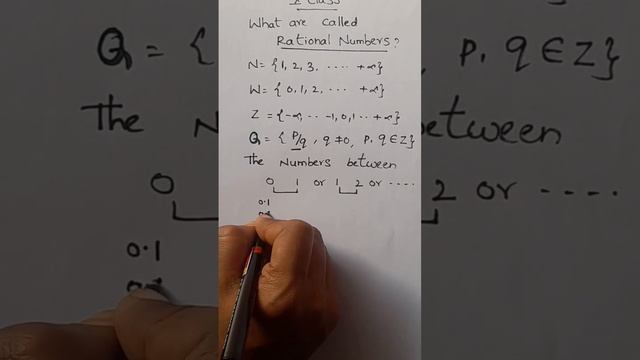 X Class
What are called
Rational Numbers?
N = {1, 2, 3, ..... +∞}
W = {0, 1, 2, ..... +∞}
Z = {-∞, ... -1, 0, 1 ... +∞}
Q = { P/q , q ≠ 0, P, q ∈ Z}
The Numbers between
0 1 or 1 2 or ....
0.1